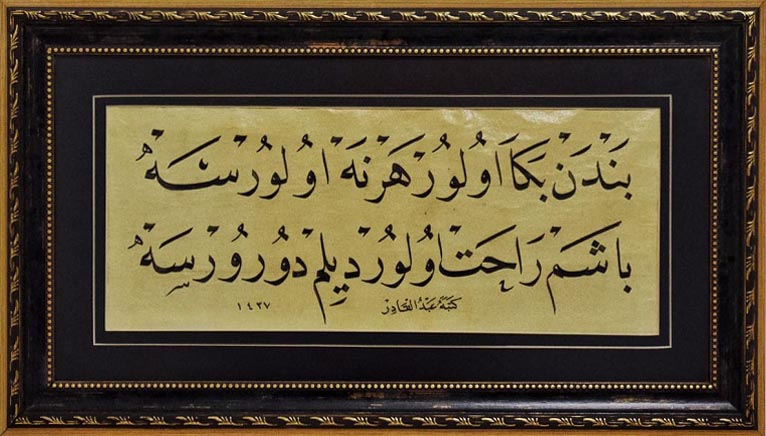 بَنْدَنْ بَكَا اوُلُورْ هَرْ نَهْ اوُلُورْسَهْ
باشَمْ رَاحَتْ اوُلُورْ دِيلِمْ دُورُورْسَهْ
كتبه عبد القادر
١٤٣٧